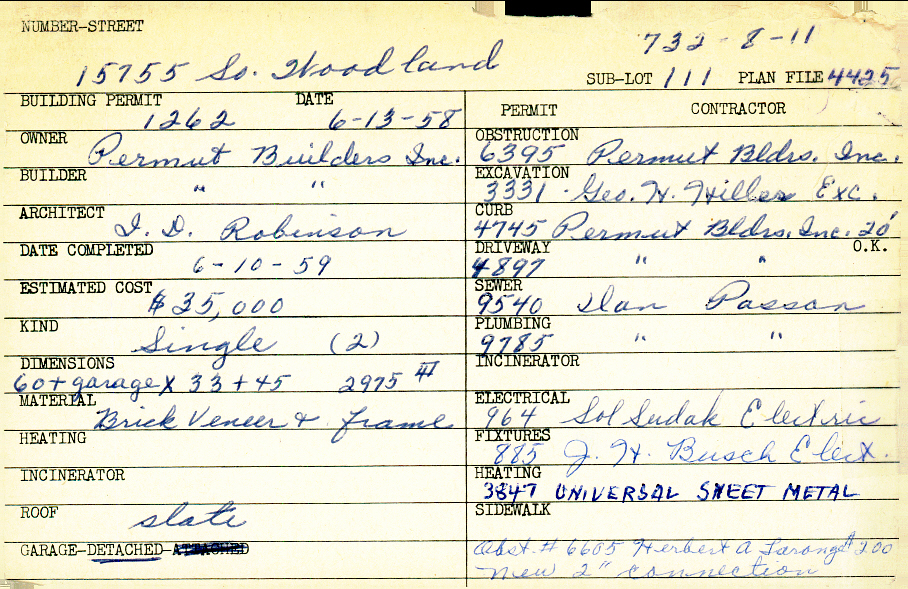 NUMBER-STREET
732-8-11
15755 So. Woodland
SUB-LOT 111 PLAN FILE 4425
BUILDING PERMIT DATE
1262 6-13-58
OWNER
Permut Builders Inc.
BUILDER
" "
ARCHITECT
I. D. Robinson
DATE COMPLETED
6-10-59
ESTIMATED COST
$35,000
KIND
Single (2)
DIMENSIONS
60+garage X 33+45 2975
MATERIAL
Brick Veneer & frame
HEATING
INCINERATOR
ROOF
slate
GARAGE-DETACHED-ATTACHED
PERMIT CONTRACTOR
OBSTRUCTION
6395 Permut Bldrs. Inc.
EXCAVATION
3331 Geo. H. Hiller Exc.
CURB
4745 Permut Bldrs. Inc. 20'
DRIVEWAY O.K.
4897 " "
SEWER
9540 Dan Passan
PLUMBING
9785 " "
INCINERATOR
ELECTRICAL
964 Sol Sudak Electric
FIXTURES
885 J. H. Busch Elect.
HEATING
3847 UNIVERSAL SHEET METAL
SIDEWALK
Obst. # 6605 Herbert A Laronge $200
New 2" connection